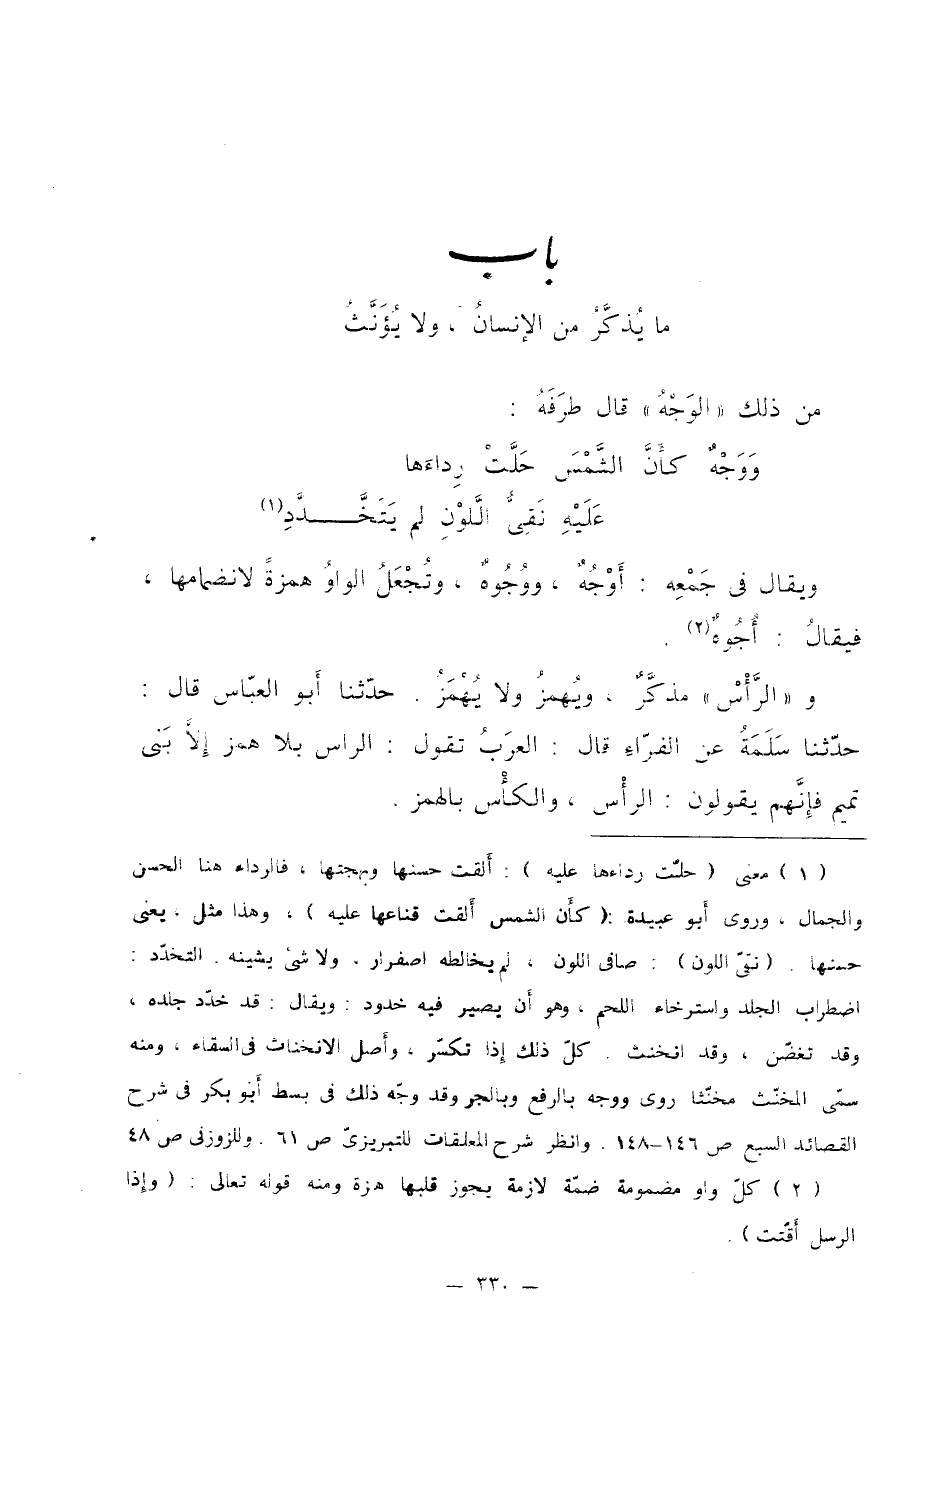 باب
ما يُذكَّرُ من الإنسانُ ، ولا يُؤَنَّثُ
من ذلك « الوَجْهُ » قال طرَفَهُ :
وَوَجْهٌ كأَنَّ الشَّمْسَ حَلَّتْ رِداءَها
عَلَيْهِ نَقِىُّ اللَّوْنِ لم يَتَخَـــدَّدِ(١)
ويقال فى جَمْعِه : أَوْجُهٌ ، ووُجُوهٌ ، وتُجْعَلُ الواوُ همزةً لانضمامها ،
فيقالُ : أُجُوهٌ(٢) .
و « الرَّأْس » مذكَّرٌ ، ويُهمزُ ولا يُهْمَزُ . حدّثنا أَبو العبّاس قال :
حدّثنا سَلَمَةُ عن الفرّاءِ قال : العرَبُ تقول : الراس بلا همز إلاَّ بَنى
تميم فإنَّهم يقولون : الرأْس ، والكأْس بالهمز .
( ١ ) معنى ( حلّت رداءها عليه ) : ألقت حسنها وبهجتها ، فالرداء هنا الحسن
والجمال ، وروى أبو عبيدة :( كأن الشمس ألقت قناعها عليه ) ، وهذا مثل ، يعنى
حسنها . ( نقىّ اللون ) : صافى اللون ، لم يخالطه اصفرار . ولا شئ يشينه . التخدّد :
اضطراب الجلد واسترخاء اللحم ، وهو أن يصير فيه خدود : ويقال : قد خدّد جلده ،
وقد تغضّن ، وقد انخنث . كلّ ذلك إذا تكسّر ، وأصل الانخناث فى السقاء ، ومنه
سمّى المخنّث مخنّثا روى ووجه بالرفع وبالجر وقد وجّه ذلك فى بسط أبو بكر فى شرح
القصائد السبع ص ١٤٦–١٤٨ . وانظر شرح المعلقات للتبريزىّ ص ٦١ . وللزوزنى ص ٤٨
( ٢ ) كلّ واو مضمومة ضمّة لازمة يجوز قلبها همزة ومنه قوله تعالى : ( وإذا
الرسل أقّتت ) .
— ٣٣٠ —